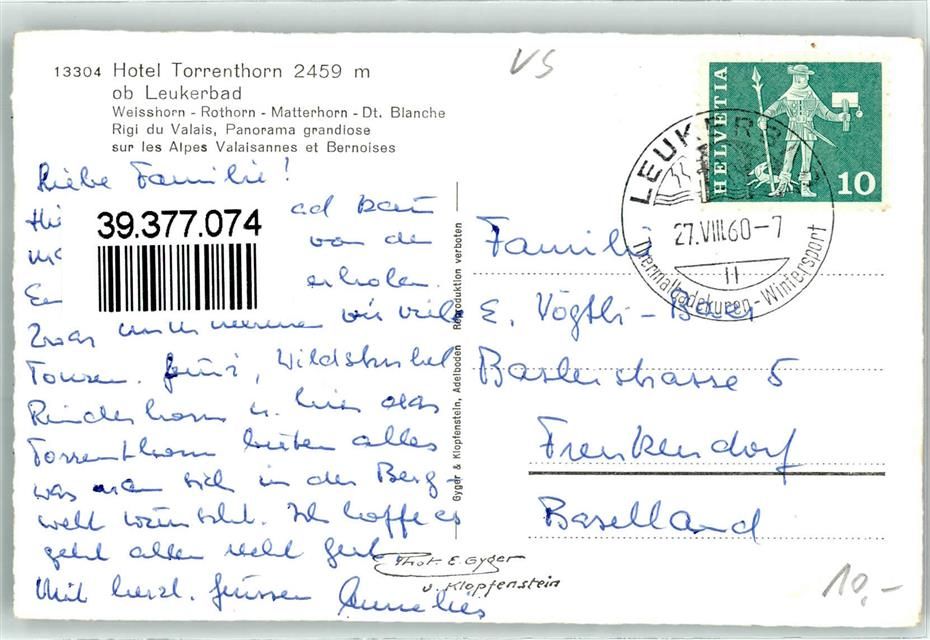 13304 Hotel Torrenthorn 2459 m
ob Leukerbad
Weisshorn - Rothorn - Matterhorn - Dt. Blanche
Rigi du Valais, Panorama grandiose
sur les Alpes Valaisannes et Bernoises
VS
HELVETIA
10
LEUKERBAD
27.VIII.60-7
II
Thermalbadekuren - Wintersport
Liebe Familie!
39.377.074
von der
erholen.
Zwar unternehmen wir viele
Touren. Wildstrubel
Rinderhorn u. hier das
Torrenthorn bieten alles
was man sich in der Berg-
welt wünscht. Ich hoffe es
geht allen recht gut.
Mit herzl. Grüssen Annelies
Gyger & Klopfenstein, Adelboden Reproduktion verboten
Familie
E. Vögtli -
Baslerstrasse 5
Frenkendorf
Baselland
Phot. E. Gyger
u. Klopfenstein
10,-